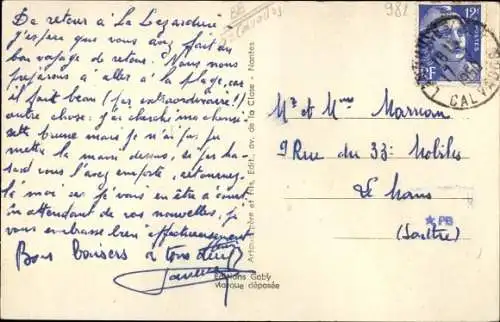 De retour à La Lézardière
j'espère que vous avez fait du
bon voyage de retour. Nous nous
préparons à aller à la plage, car
il fait beau (par extraordinaire!!)
autre chose: j'ai cherché ma chemi-
sette brune mais je n'ai pas pu
mettre la main dessus, si par ha-
sard vous l'avez emporté, retournez
la moi car je vous en être à court
en attendant de vos nouvelles, je
vous embrasse bien affectueusement
Bons baisers à tous deux
Artaud père et fils, Edit., av. de la Close - Nantes
Editions Gaby
Marque déposée
982
12F
POSTES
RF
CALVADOS
Mr et Mme
9 Rue du 33e Mobiles
Le Mans
(Sarthe)
★PB